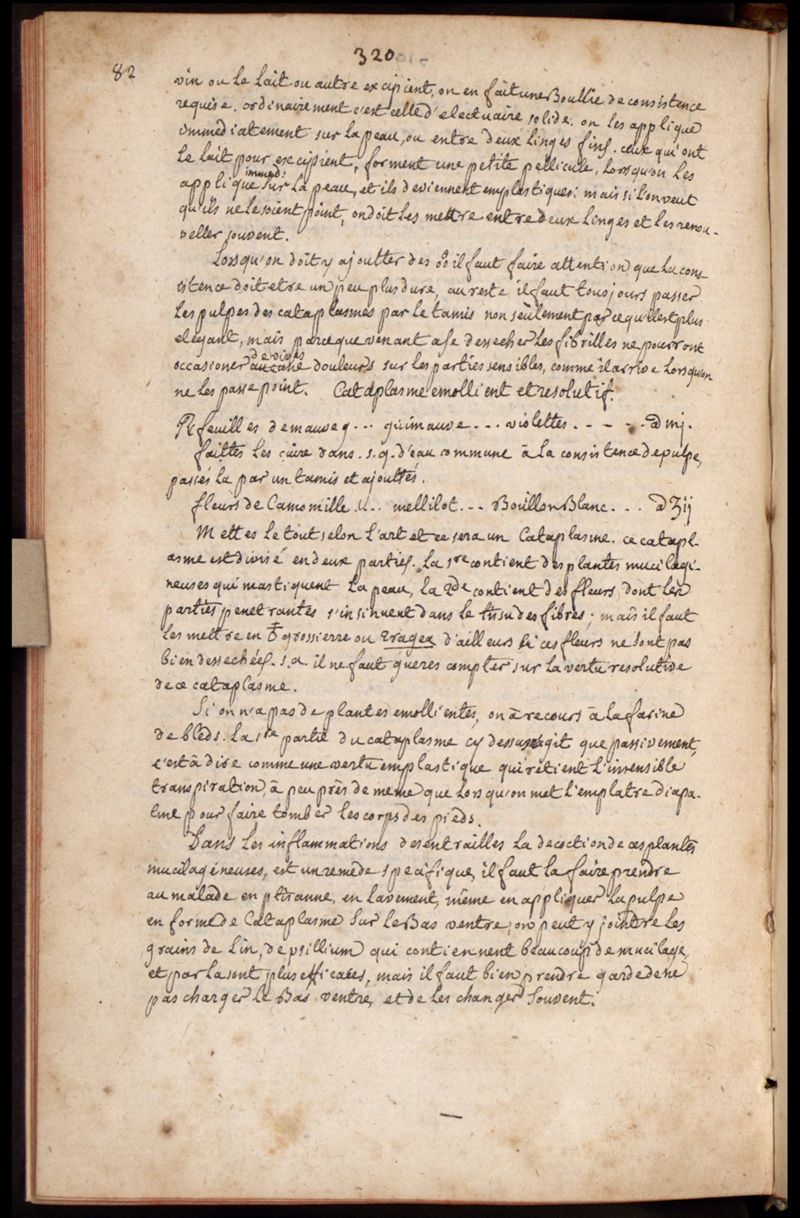 320
82
vin ou le lait ou autre excipient, on en fait une Boullie de consistence
requise. ordinairement c'est celle d'electuaire solide. on les applique
immediatement sur la peau, ou entre deux linges fins. ceux qui ont
le lait pour excipient, forment une petite pellicule, lorsqu'on les
applique immed: sur la peau, et ils deviennent emplastiques; mais si l'on veut
qu'ils ne le soient point, on doit les mettre entre deux linges et les renou-
veller souvent.
Lorsqu'on doit y ajoutter des il faut faire attention que la cons
istence doit etre un peu plus dure, au reste il faut tousjours passer
les pulpes des cataplasmes par le tamis non seulement parce qu'il est plus
elegant, mais parceque venant a se dessecher les fibrilles ne pourront
occasioner de vives douleurs sur les parties sensibles, comme il arrive lorsqu'on
ne les passe point. Cataplasme emollient et resolutif.
℞ feuilles de mauves ... guimauve ... violettes - - - - - a mj.
faittes les cuire dans. s. q. d'eau commune à la consistence de pulpe,
passés la par un tamis et ajouttés.
fleurs de Camomille ... mellilot --- Bouillon Blanc --- a ʒij
Mettes le tout selon l'art et ce sera un Cataplasme. ce catapl-
asme est divisé en deux parties. La 1re contient des plantes mucilagi-
neuses qui mastiquent la peau, la 2de contient des fleurs, dont les
parties penetrantes s'insinuent dans le tissu des fibres; mais il faut
les mettre en grossierre ou tragea d'ailleurs si ces fleurs ne sont pas
bien dessechées. s.a. il ne faut gueres compter sur la vertu resolutive
de ce cataplasme.
Si on n'a pas de plantes emollientes, on à recours à la farine
de bleds. La 1re partie du cataplasme cy dessus n'agit que passivement,
c'est à dire comme une vertu emplastique qui retient l'insensible
transpiration, à peu près de meme que lorsqu'on met l'emplatre diapa-
lme pour faire tomber les corps des pieds.
Dans les inflammations des entrailles la decoction de ces plantes
mucilagéneuses, est un remede specifique, il faut la faire prendre
au malade en ptisanne, en lavement, même en appliquer la pulpe
en forme de Cataplasme sur le Bas ventre; on peut y joindre les
grains de Lin, de psillium qui contiennent beaucoup de mucilage,
et par la sont plus efficaces, mais il faut bien prendre garde de ne
pas charger le Bas ventre, et de les changer souvent.